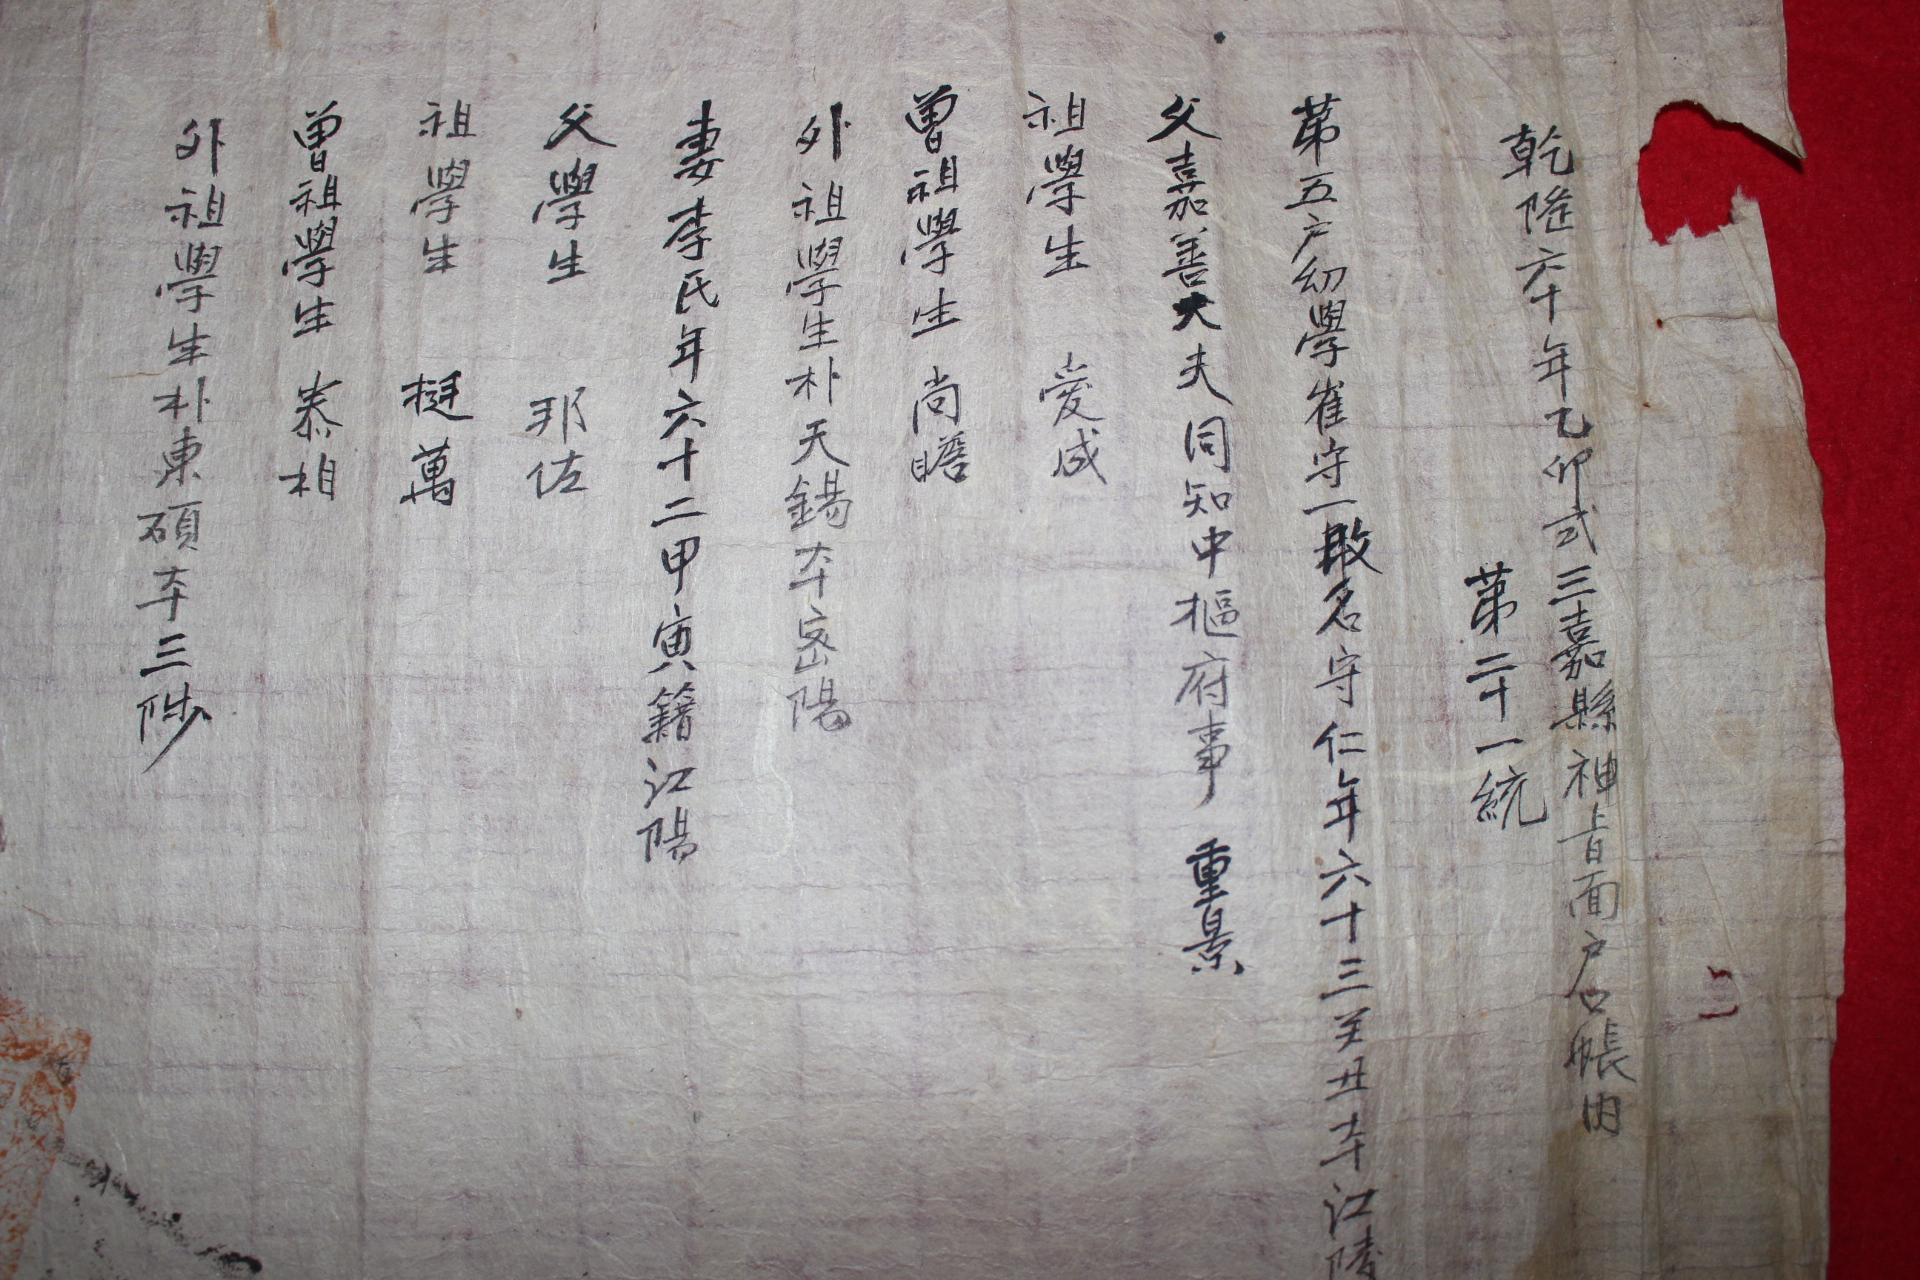 乾隆六十年乙卯式三嘉縣神旨面户口帳内
第二十一統
第五户幼學崔守一改名守仁年六十三癸丑本江陵
父嘉善大夫同知中樞府事 重景
祖學生 愛成
曾祖學生 尚瞻
外祖學生朴天錫本密陽
妻李氏年六十二甲寅籍江陽
父學生 邦佐
祖學生 挺萬
曾祖學生 泰相
外祖學生朴東碩本三陟